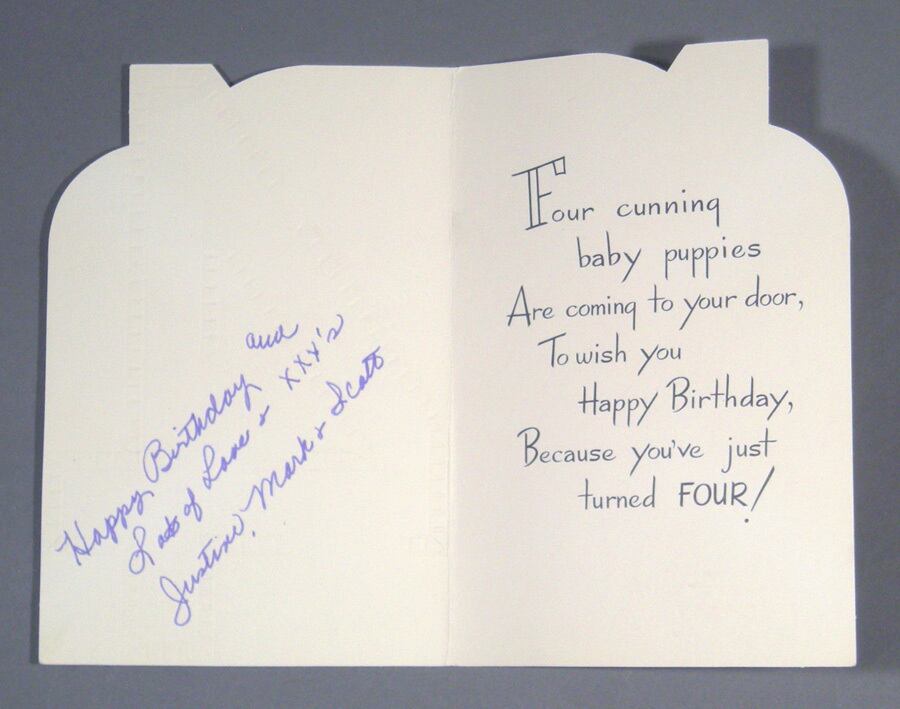 Happy Birthday and
Lots of Love & XXX's
Justine, Mark & Scott
Four cunning
baby puppies
Are coming to your door,
To wish you
Happy Birthday,
Because you've just
turned FOUR!